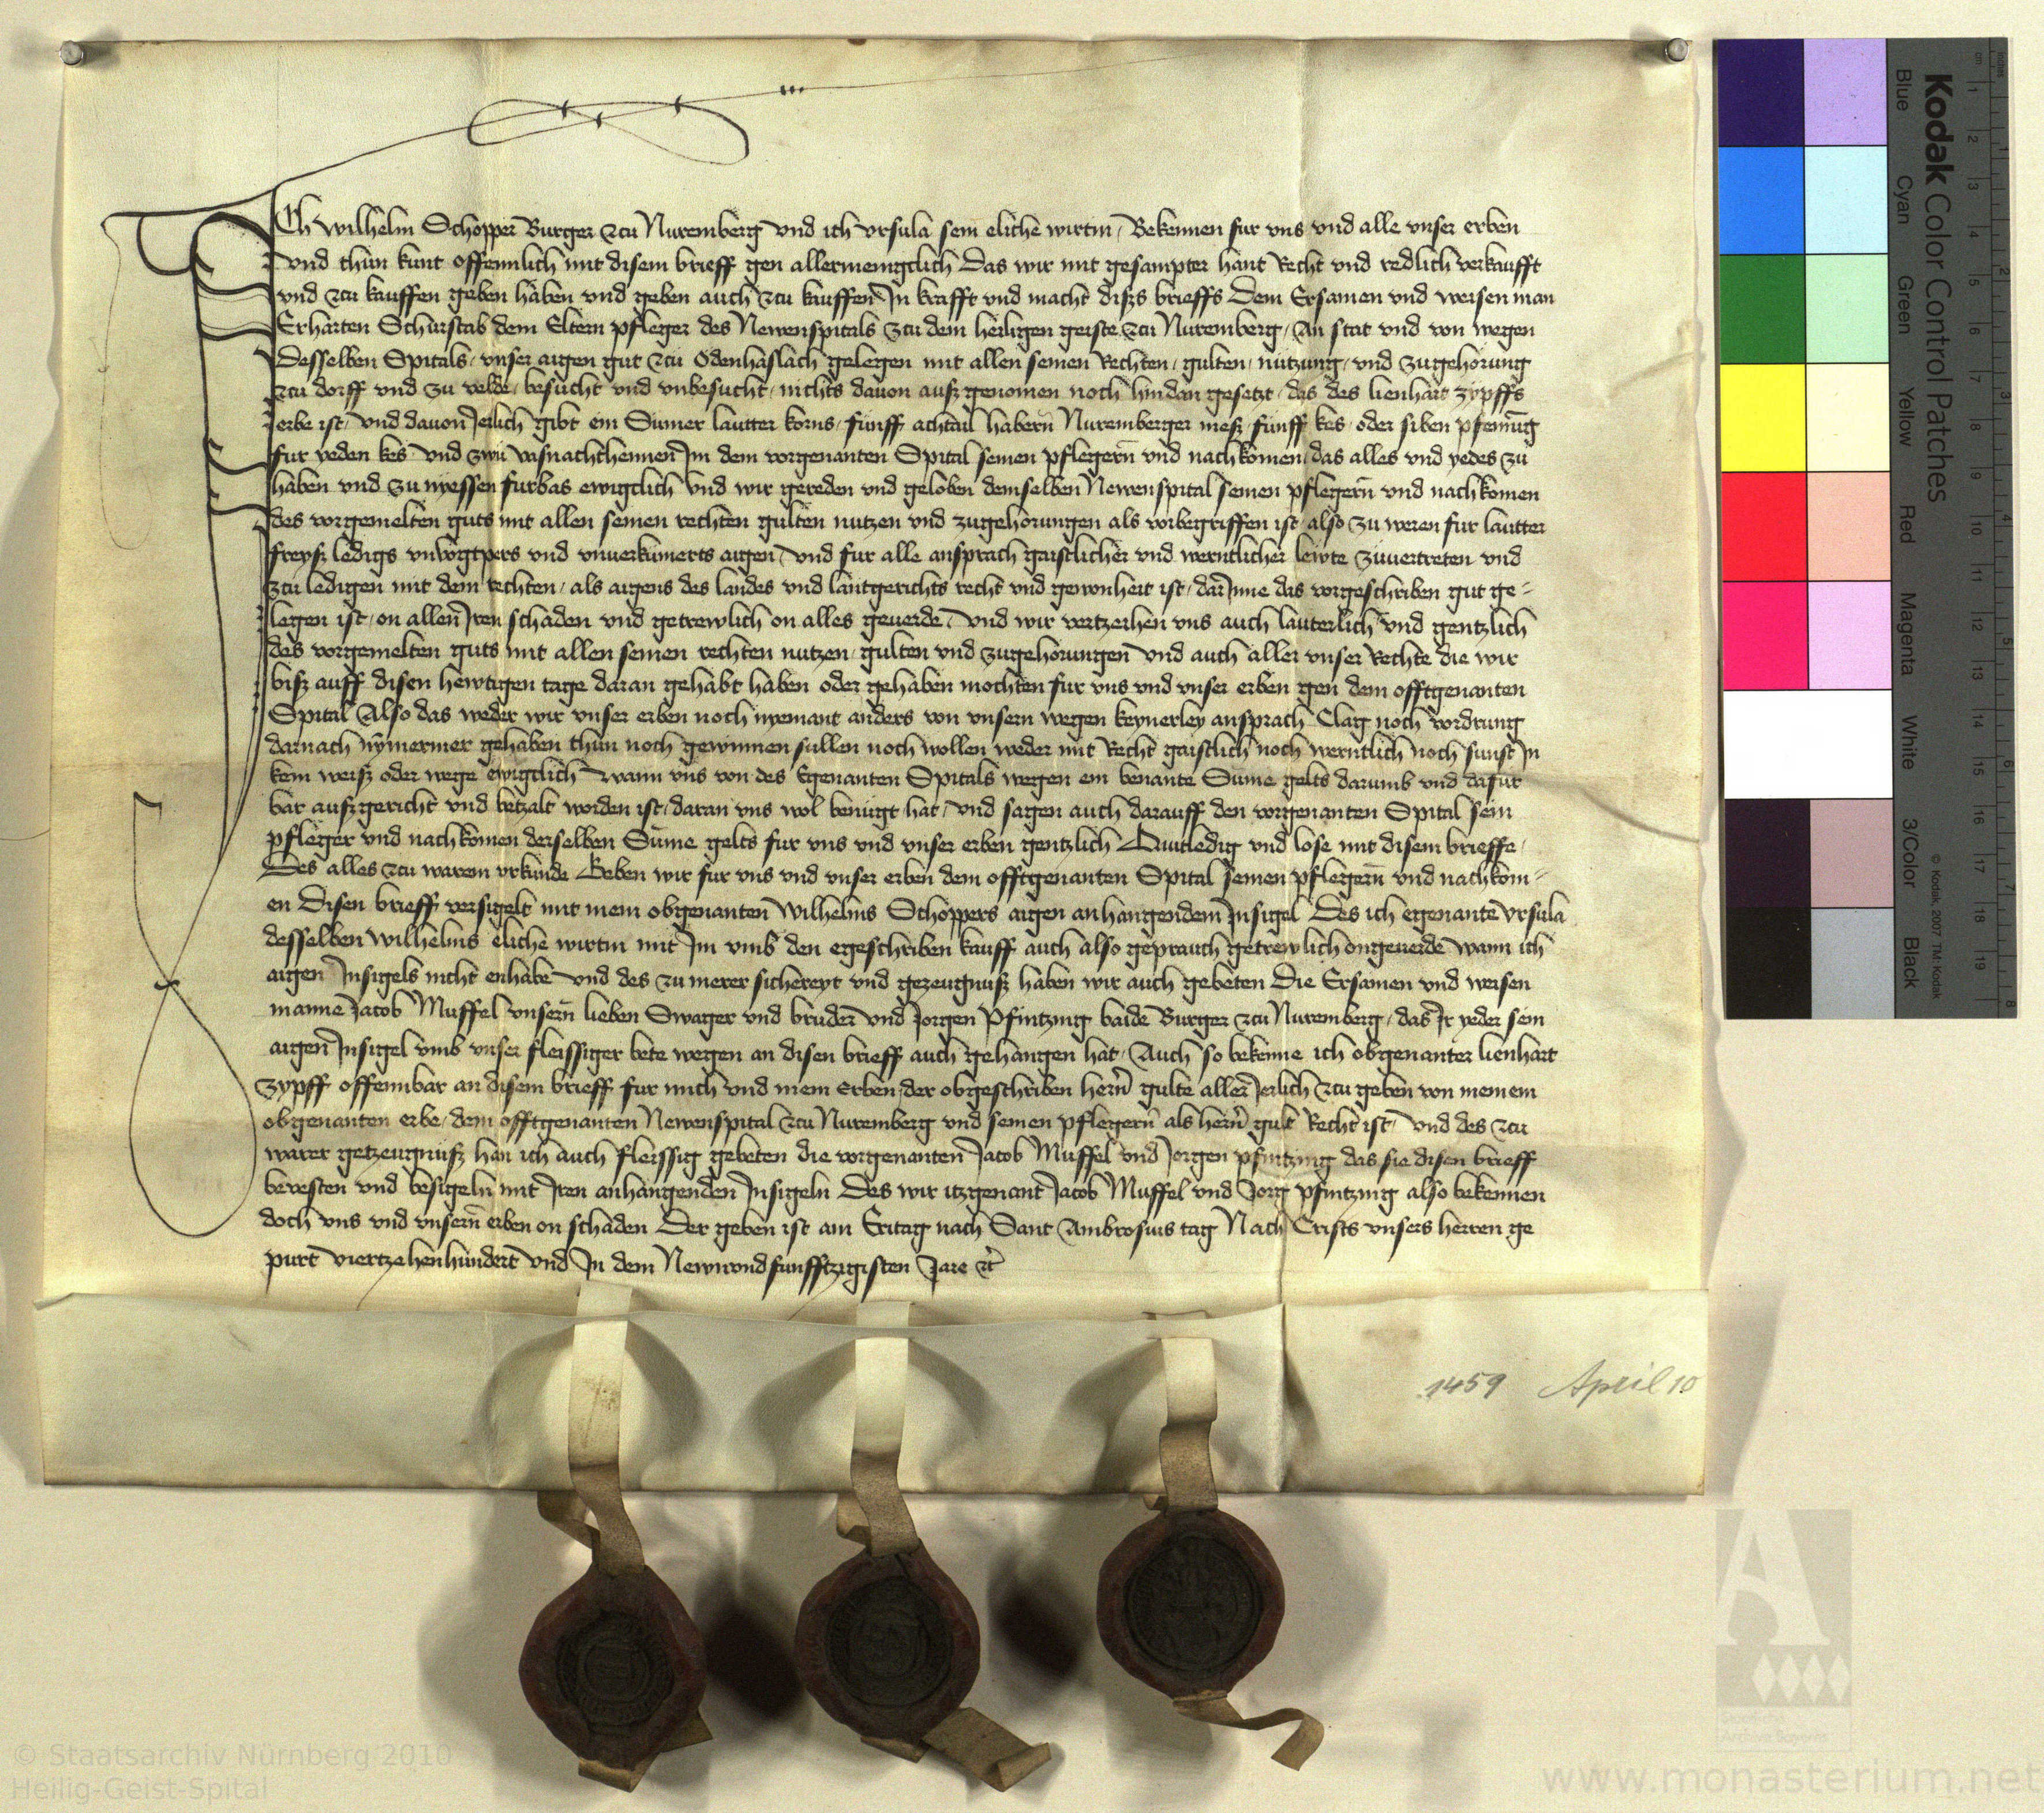 Ich Wilhelm Schopper Burger zcu Nuremberg vnd ich vrsula sein eliche wirtin, Bekennen fur vns vnd alle vnser erben
vnd thun kunt offennlich mit disem brieff gen allermenigclich Das wir mit gesampter hant Recht vnd redlich verkaufft
vnd zcu kauffen geben haben vnd geben auch zcu kauffen In krafft vnd macht diss brieffs Dem Ersamen vnd weisen man
Erharten Schurstab dem Eltern pfleger des Newenspitals zcu dem heiligen geiste zcu Nuremberg, An stat vnd von wegen
Desselben Spitals, vnser aigen gut zcu Odenhaslach gelegen mit allen seinen Rechten, gulten, nutzung, vnd zugehorung
zcu dorff vnd zu velde, besucht vnd vnbesucht, nichts dauon aufzgenomen noch hindan gesetzt, das des lienhart zypffs
erbe ist, vnd dauon Jerlich gibt ein Sumer lautter korns, funff achtail habern Nuremberger mesz, funff kes, oder siben pfenning
fur yeden kes vnd zwu vasnachthennen Im dem vorgenanten Spital seinen pflegern vnd nachkomen, das alles vnd yedes zu
haben vnd zu nyessen furbas ewigclich Vnd wir gereden vnd geloben demselben Newenspital seinen pflegern vnd nachkomen
des vorgemelten guts mit allen seinen rechten gulten nutzen vnd zugehorungen als vorbegriffen ist, also zu weren fur lautter
freysz ledigs vnuogtpers vnd vnuerkumerts aigen, vnd fur alle ansprach gaistlicher vnd werntlicher lewte zuuertreten vnd
zcu ledigen mit dem rechten, als aigens des landes vnd lantgerichts recht vnd gewonheit ist, dar Inne das vorgeschriben gut ge=
legen ist, on allen Iren schaden vnd getrewlich on alles geuerde, Vnd wir vertzeihen vns auch lauterlich vnd gentzlich
des vorgemelten guts mit allen seinen rechten nutzen, gulten vnd zugehorungen vnd auch aller vnser Rechte die wir
bisz auff disen hewtigen tage daran gehabt haben oder gehaben mochten fur vns vnd vnser erben gen dem offtgenanten
Spital Also das weder wir vnser erben noch nyemant anders von vnsern wegen keynerley ansprach Clag noch vordrung
darnach nymermer gehaben thun noch gewinnen sullen noch wollen weder mit Recht gaistlich noch werntlich noch sunst In
kein weisz oder wege ewigclich wann vns von des Egenanten Spitals wegen ein benante Sume gelts darumb vnd dafur
bar auszgericht vnd betzalt worden ist, daran vns wol benugt hat, vnd sagen auch darauff den vorgenanten Spital sein
pfleger vnd nachkomen derselben Sume gelts fur vns vnd vnser erben gentzlich Quitledig vnd lose mit disem brieffe,
Des alles zcu warem vrkunde Geben wir fur vns vnd vnser erben dem offtgenanten Spital seinen pflegern vnd nachkom=
en Disen brieff versigelt mit mein obgenanten Wilhelms Schoppers aigen anhangendem Insigel Des ich egenante vrsula
desselben Wilhelms eliche wirtin mit Im vmb den egeschriben kauff auch also geprauch getrewlich ongeuerde wann ich
aigen Insigels nicht enhabe vnd des zu merer sichereyt vnd gezeugnusz haben wir auch gebeten Die Ersamen vnd weisen
manne Jacob Muffel vnsern lieben Swager vnd bruder vnd Jorgen Pfintzing baide Burger zcu Nuremberg, das Ir yeder sein
aigen Insigel vmb vnser fleissiger bete wegen an disen brieff auch gehangen hat, Auch so bekenne ich obgenanter lienhart
zypff offennbar an disem brieff fur mich vnd mein Erben, der obgeschriben hern gulte aller Jerlich zcu geben von meinem
obgenanten erbe, dem offtgenanten Newenspital zcu Nuremberg vnd seinen pflegern als hern gult Recht ist, vnd des zcu
warer getzeugnusz han ich auch fleissig gebeten die vorgenanten Jacob Muffel vnd Jorgen pfintzing das sie disen brieff
bevesten vnd besigeln mit Iren anhangenden Insigeln Des wir itzgenant Jacob Muffel vnd Jorg pfintzing also bekennen
doch vns vnd vnsern erben on schaden Der geben ist am Eritag nach Sant Ambrosius tag Nach Crists vnsers herren ge
purt viertzehenhundert vnd In dem Newnvndfunfftzigisten Jare etc
1459 April 10
Kodak Color Control Patches
Blue Cyan Green Yellow Red Magenta White 3/Color Black
© Kodak, 2007 TM: Kodak
© Staatsarchiv Nürnberg 2010
Heilig-Geist-Spital
www.monasterium.net